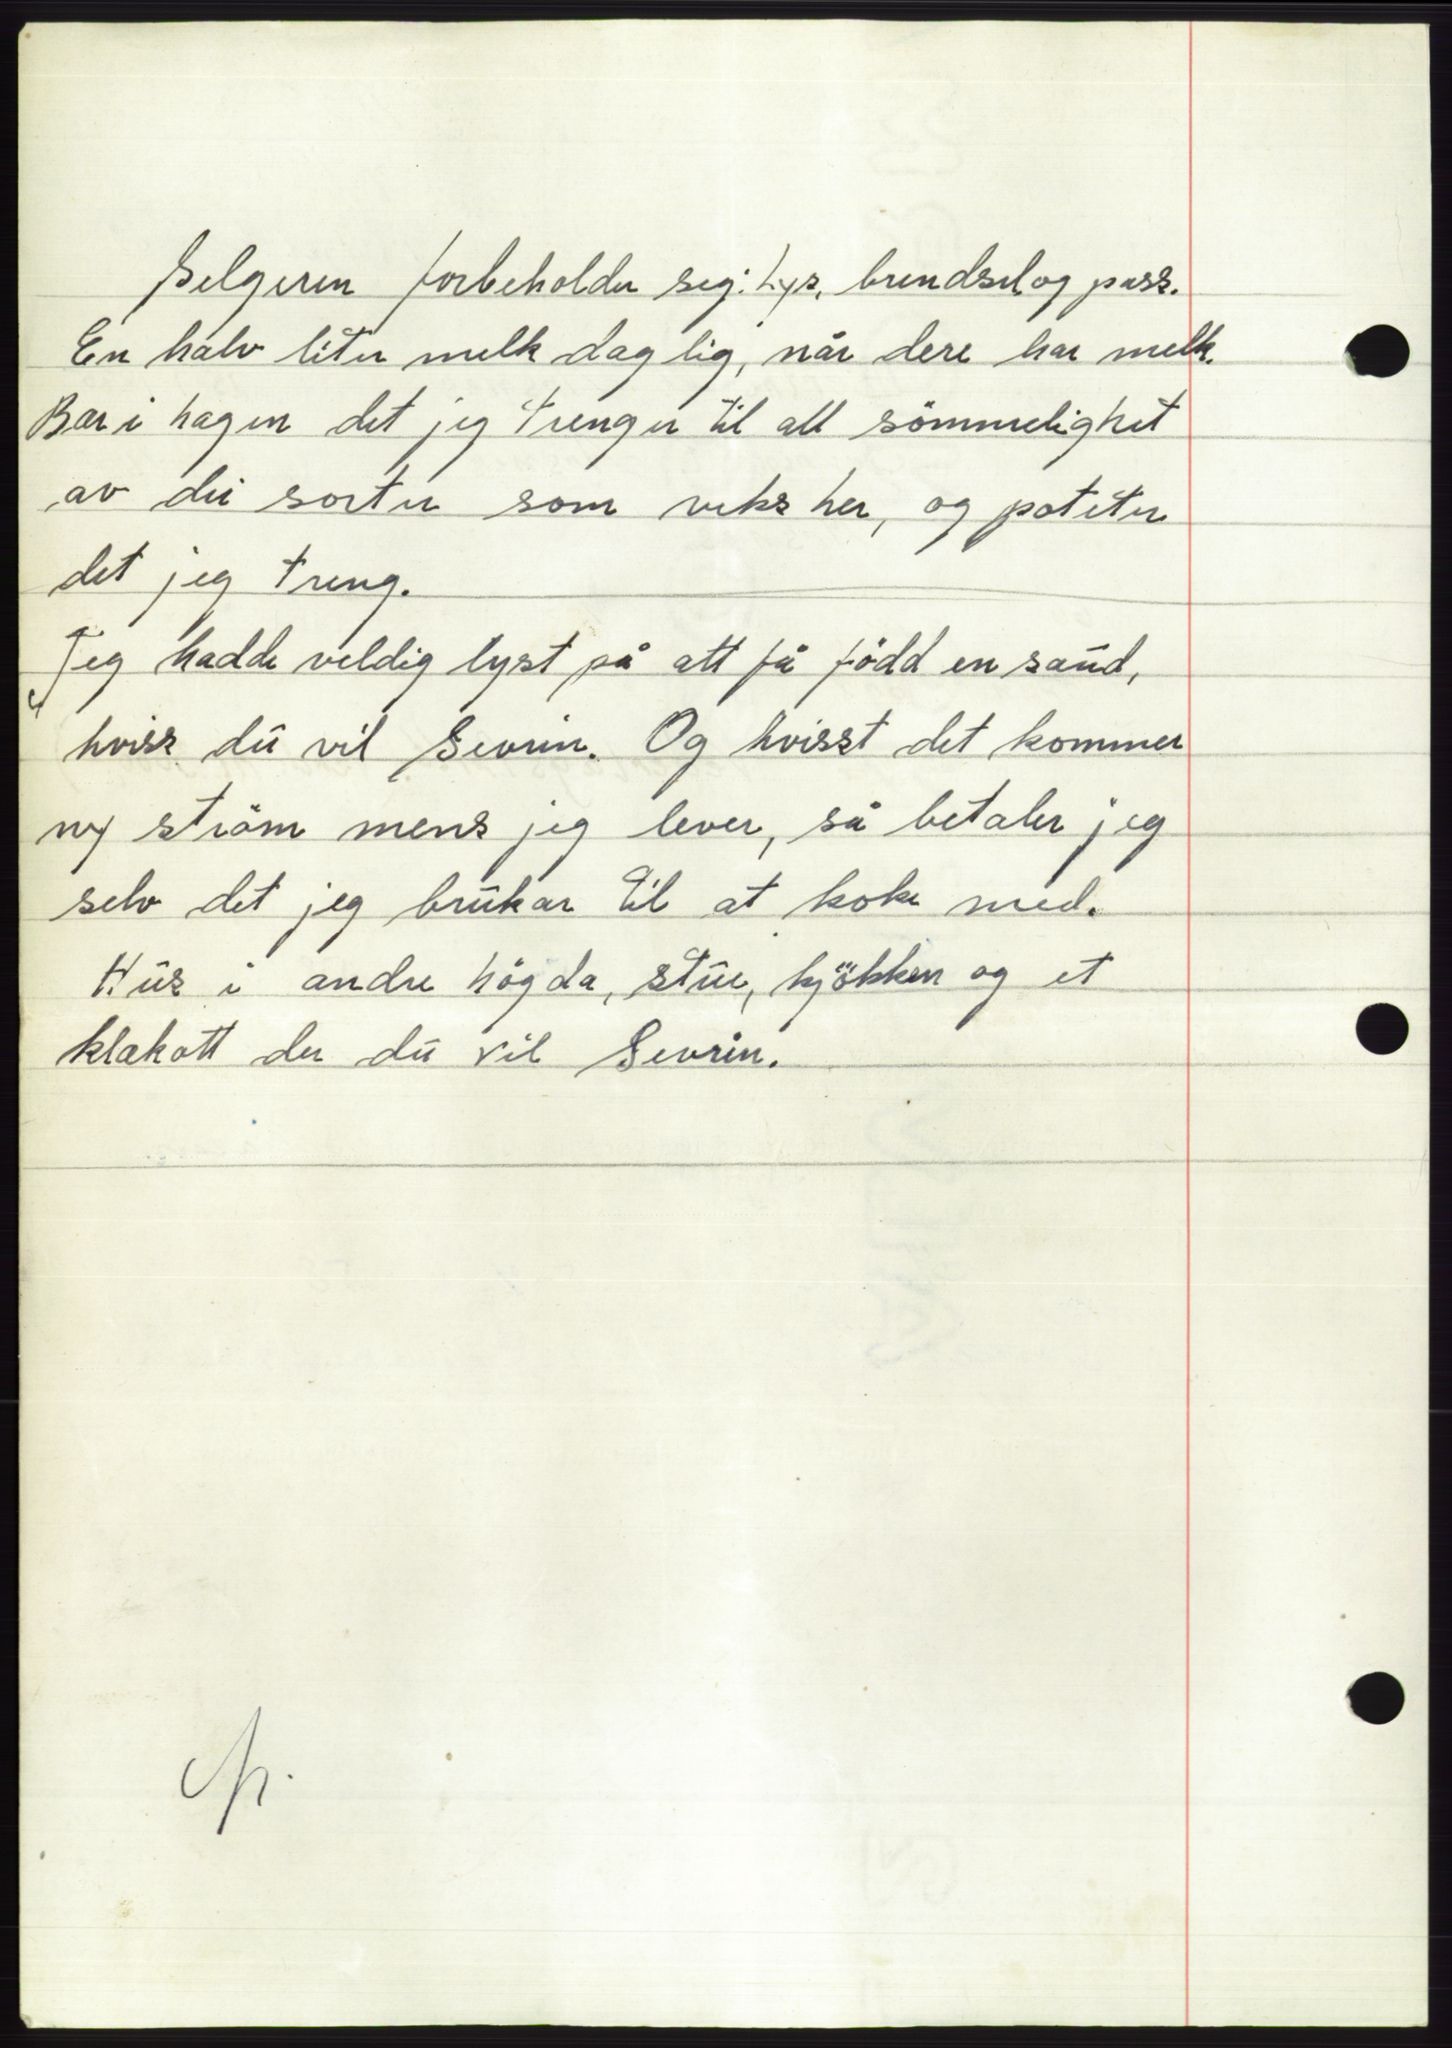 Selgeren forbeholder seg: Lys, brendsel og pass.
En halv liter melk daglig, når dere har melk.
Bær i hagen det jeg trenger til all sömmelighet
av dei sorter som veks her, og poteter
det jeg treng.
Jeg hadde veldig lyst på att få född en saud,
hviss du vil Sevrin. Og hvisst det kommer
ny ström mens jeg lever, så betaler jeg
selv det jeg brukar til at koke med.
Hus i andre högda, stue, kjökken og et
klækott der du vil Sevrin.